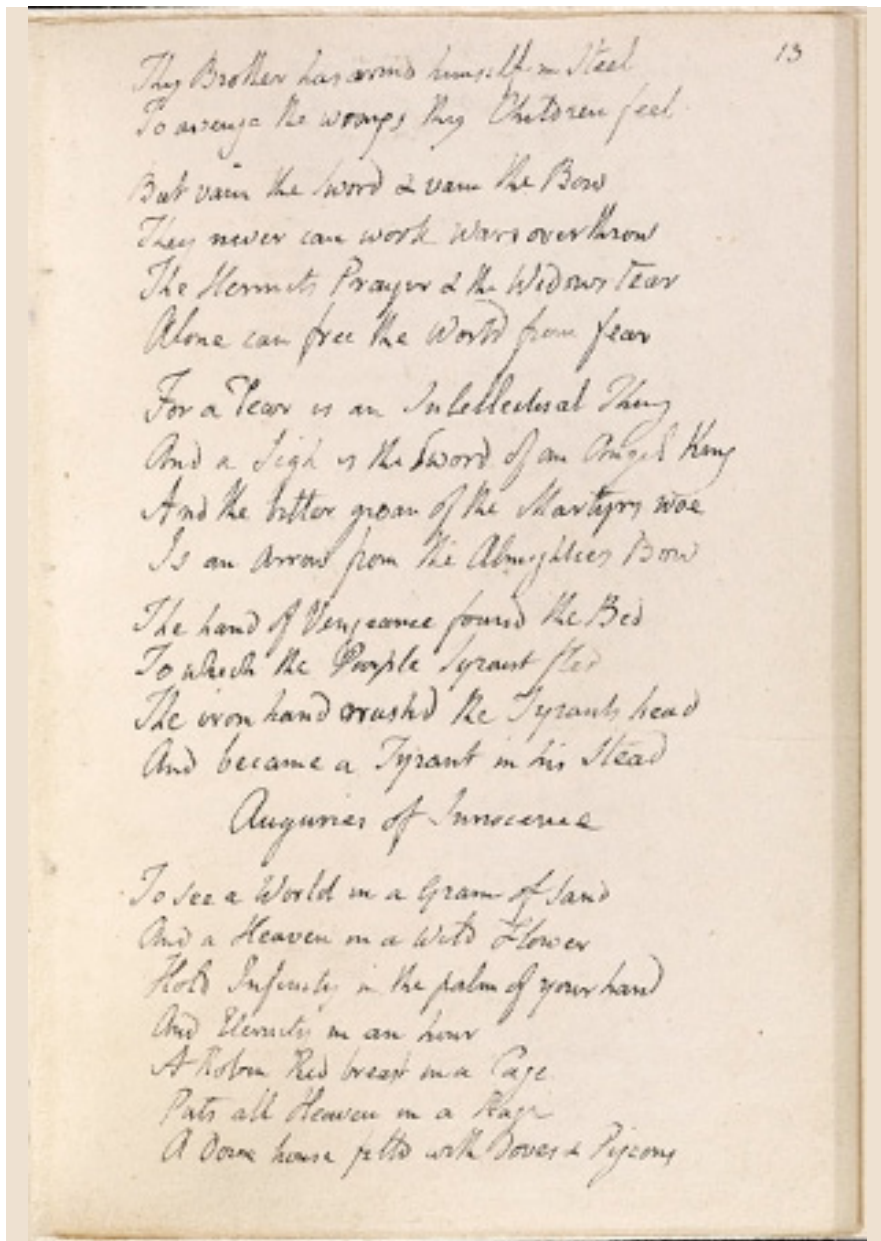 13
Thy Brother has armd himself in Steel
To avenge the wrongs thy Children feel
But vain the Sword & vain the Bow
They never can work Wars overthrow
The Hermits Prayer & the Widows tear
Alone can free the World from fear
For a Tear is an Intellectual Thing
And a Sigh is the Sword of an Angel King
And the bitter groan of the Martyrs woe
Is an Arrow from the Almighties Bow
The hand of Vengeance found the Bed
To which the Purple Tyrant fled
The iron hand crushd the Tyrants head
And became a Tyrant in his stead
Auguries of Innocence
To see a World in a Grain of Sand
And a Heaven in a Wild Flower
Hold Infinity in the palm of your hand
And Eternity in an hour
A Robin Red breast in a Cage
Puts all Heaven in a Rage
A Dove house filld with Doves & Pigeons